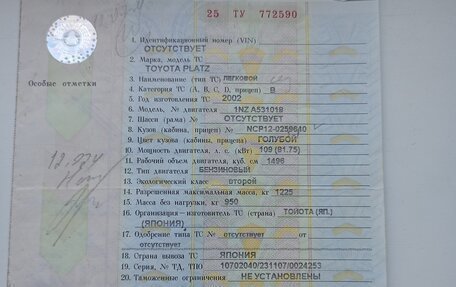 25 ТУ 772590
1. Идентификационный номер (VIN)
ОТСУТСТВУЕТ
2. Марка, модель ТС
TOYOTA PLATZ
Особые отметки
3. Наименование (тип ТС) ЛЕГКОВОЙ
4. Категория ТС (А, В, С, D, прицеп) B
5. Год изготовления ТС 2002
6. Модель, № двигателя 1NZ A531018
7. Шасси (рама) № ОТСУТСТВУЕТ
8. Кузов (кабина, прицеп) № NCP12-0259640
9. Цвет кузова (кабины, прицепа) ГОЛУБОЙ
10. Мощность двигателя, л. с. (кВт) 109 (81.75)
11. Рабочий объем двигателя, куб. см 1496
12. Тип двигателя БЕНЗИНОВЫЙ
13. Экологический класс второй
14. Разрешенная максимальная масса, кг 1225
15. Масса без нагрузки, кг 950
16. Организация—изготовитель ТС (страна) ТОЙОТА (ЯП.)
(ЯПОНИЯ)
17. Одобрение типа ТС № отсутствует от
отсутствует
18. Страна вывоза ТС ЯПОНИЯ
19. Серия, № ТД, ТПО 10702040/231107/0024253
20. Таможенные ограничения НЕ УСТАНОВЛЕНЫ